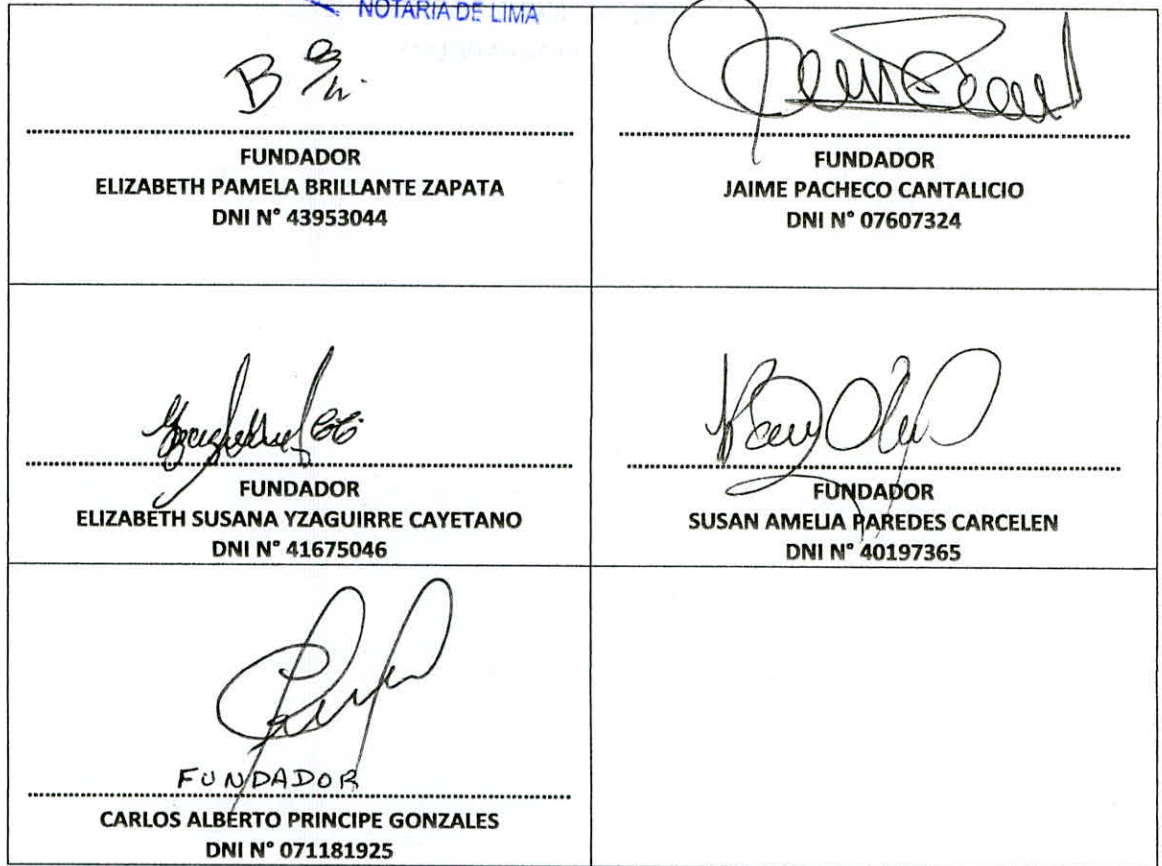 NOTARIA DE LIMA
FUNDADOR
ELIZABETH PAMELA BRILLANTE ZAPATA
DNI N° 43953044
FUNDADOR
JAIME PACHECO CANTALICIO
DNI N° 07607324
FUNDADOR
ELIZABETH SUSANA YZAGUIRRE CAYETANO
DNI N° 41675046
FUNDADOR
SUSAN AMELIA PAREDES CARCELEN
DNI N° 40197365
FUNDADOR
CARLOS ALBERTO PRINCIPE GONZALES
DNI N° 071181925